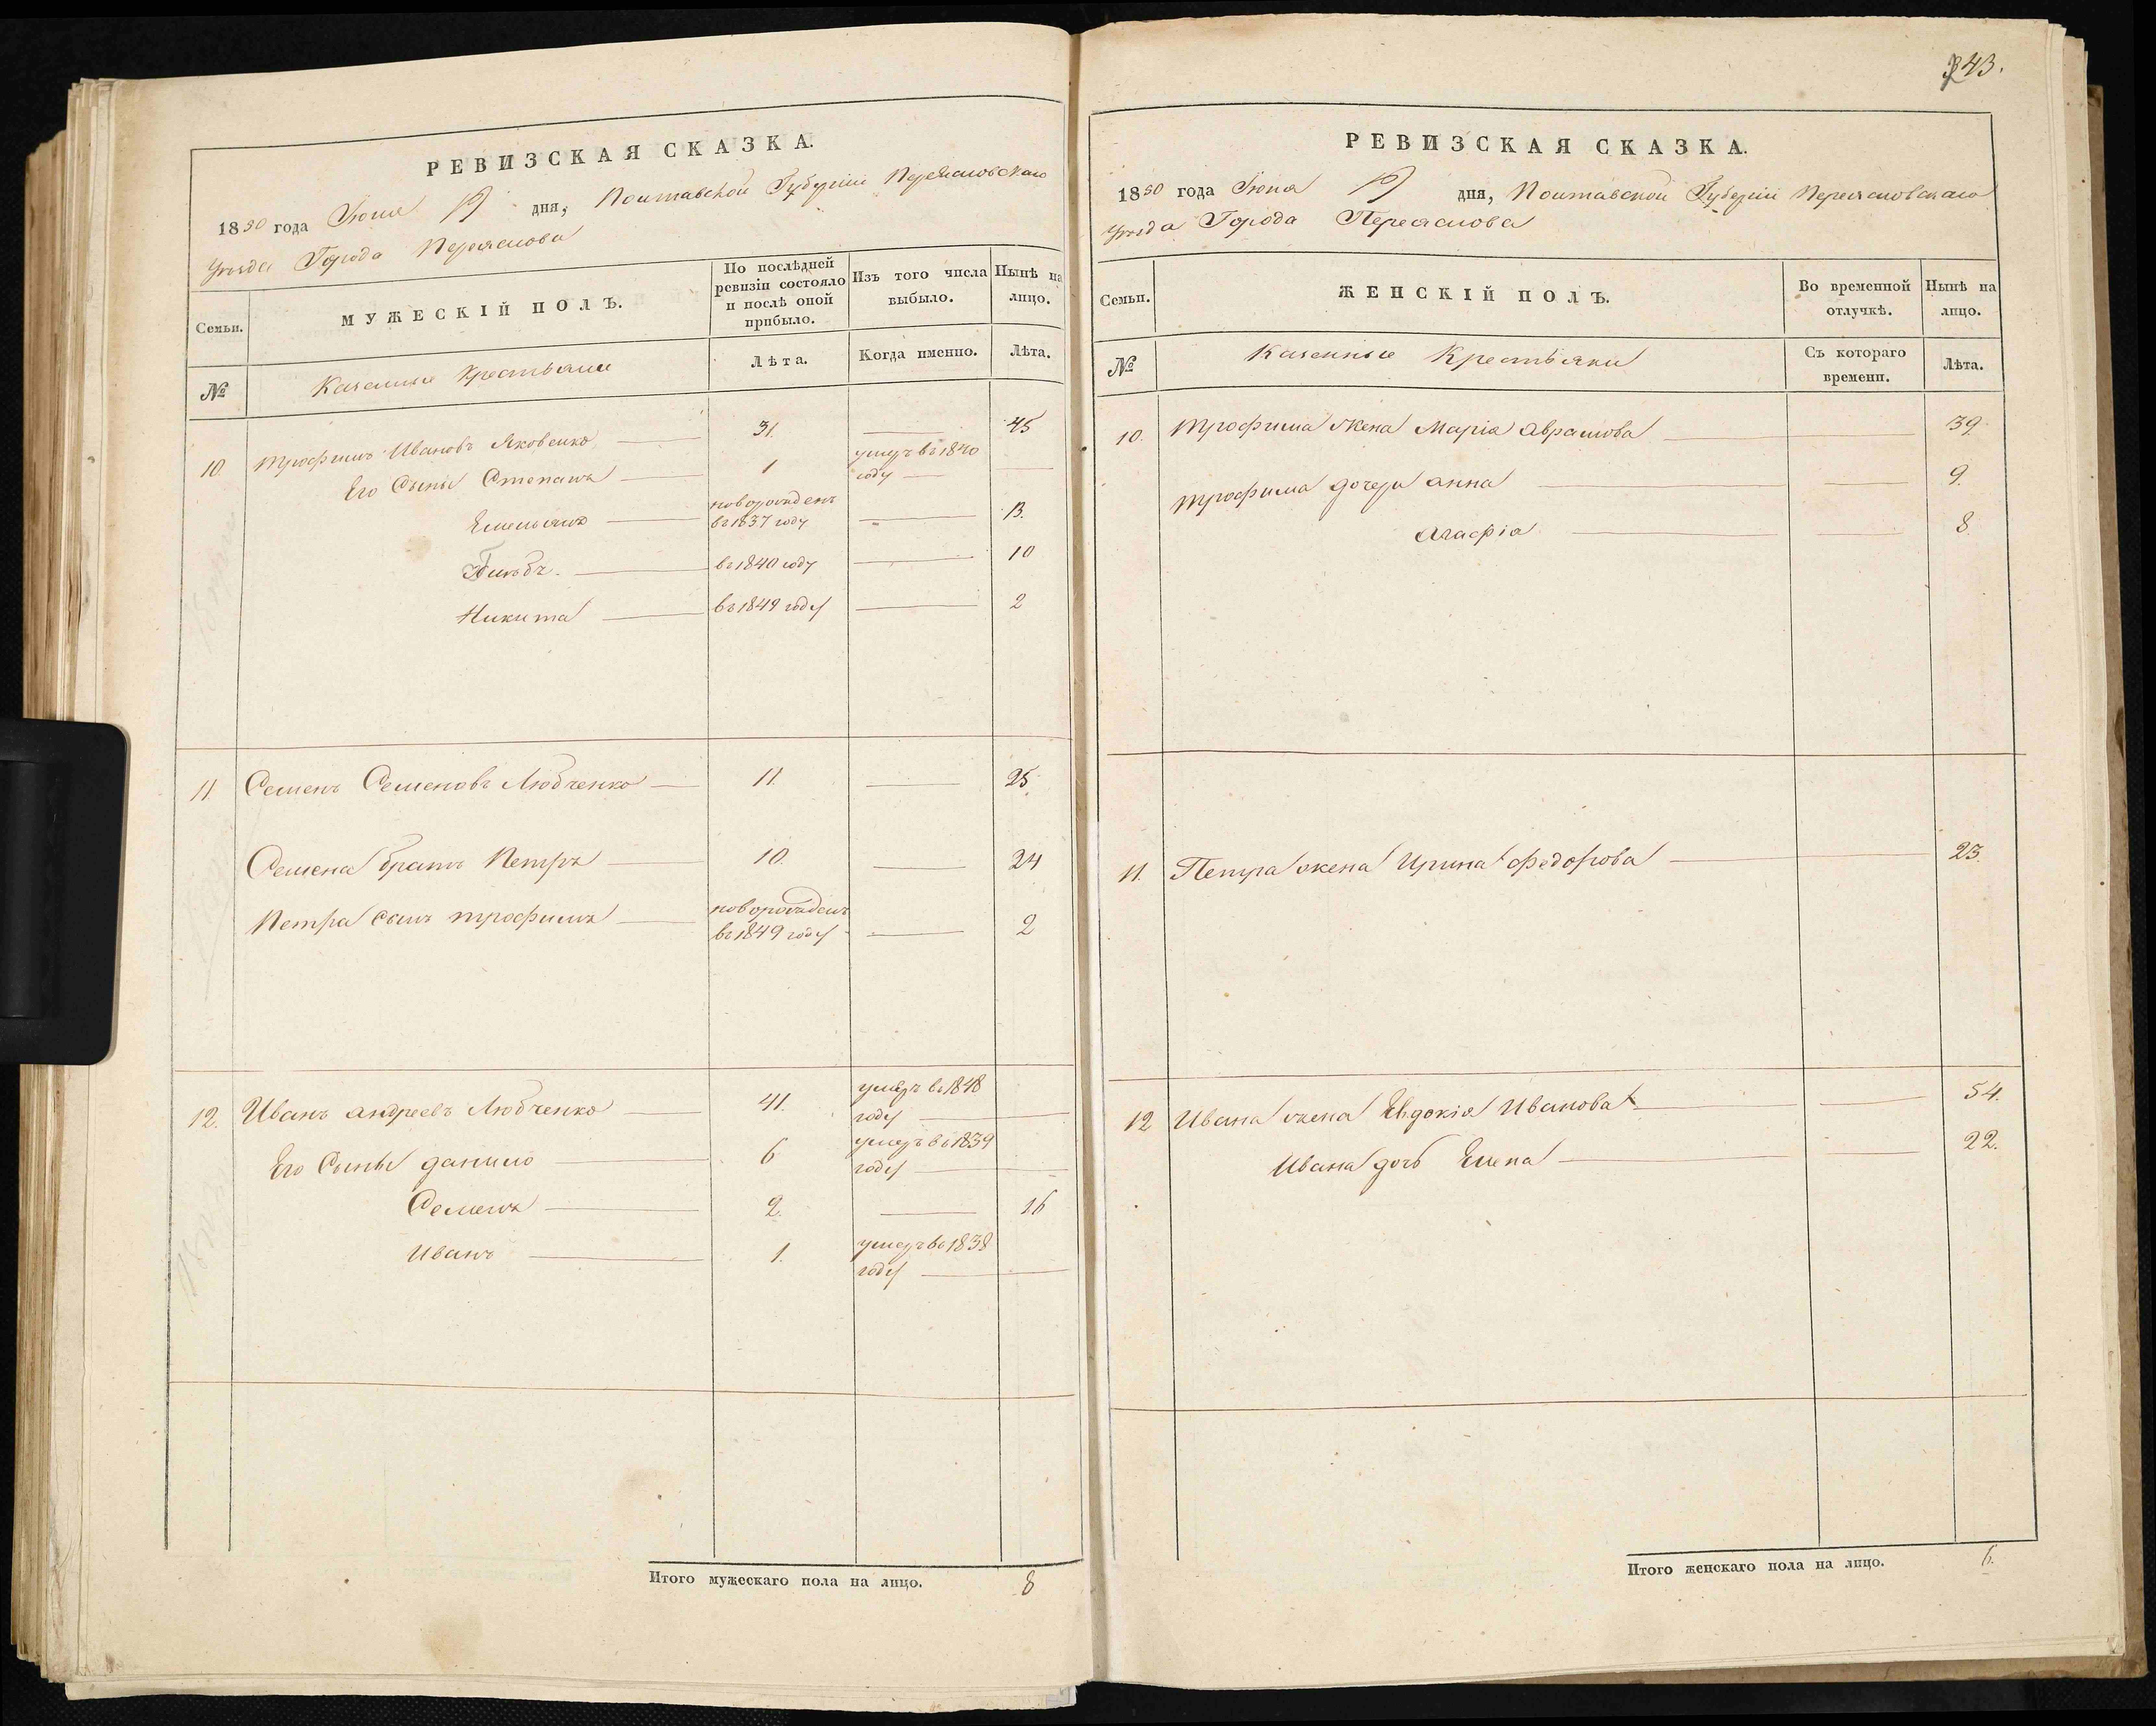 243.
РЕВИЗСКАЯ СКАЗКА.
1850 года Іюня 19 дня, Полтавской Губерніи Переясловскаго
уѣзда Города Переяслова
Семьи. МУЖЕСКІЙ ПОЛЪ. По послѣдней ревизіи состояло и послѣ оной прибыло. Изъ того числа выбыло. Нынѣ на лицо.
№ Казенные Крестьяне Лѣта. Когда именно. Лѣта.
10 Трофимъ Ивановъ Яковенко 31. 45
Его Сыны Степанъ 1 умеръ въ 1840 году
Емельянъ новорожденъ въ 1837 году 13.
Глѣбъ въ 1840 году 10
Никита въ 1849 году 2
11 Семенъ Семеновъ Любченко 11. 25
Семена братъ Петръ 10. 24
Петра сынъ трофимъ новорожденъ въ 1849 году 2
12. Иванъ андреевъ Любченко 41. умеръ въ 1848 году
Его Сыны данило 6 умеръ въ 1839 году
Семенъ 2. 16
Иванъ 1. умеръ въ 1838 году
Итого мужескаго пола на лицо. 8
РЕВИЗСКАЯ СКАЗКА.
1850 года Іюня 19 дня, Полтавской Губерніи Переясловскаго
уѣзда Города Переяслова
Семьи. ЖЕНСКІЙ ПОЛЪ. Во временной отлучкѣ. Нынѣ на лицо.
№ Казенные Крестьяни Съ котораго времени. Лѣта.
10. Трофима Жена Марія Аврамова 39.
трофима дочери анна 9.
Агафіа 8
11. Петра жена Ирина федорова 23.
12 Ивана жена Евдокія Иванова 54.
Ивана дочь Елена 22.
Итого женскаго пола на лицо. 6.